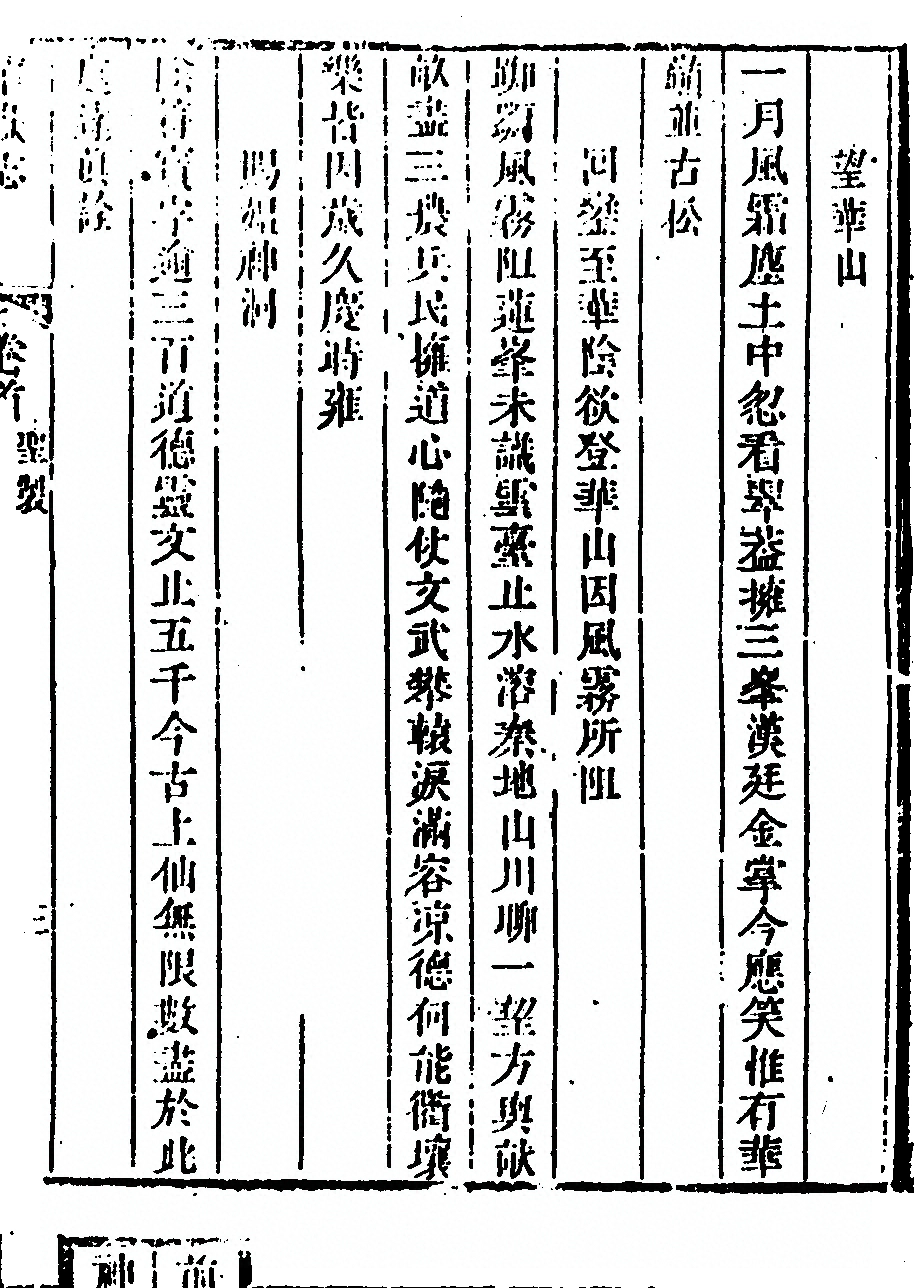 望華山
一月風霜塵土中忽看翠蓋擁三峯漢廷金掌今應笑惟有華
嶺並古松
回鑾至華陰欲登華山因風霧所阻
踟躕風霧阻蓮峯未識靈臺止水溶秦地山川聊一望方輿畎
畝盡三農兵民擁道心隨仗文武攀轅淚滿容涼德何能衢壤
樂皆因歲久慶時雍
賜 神洞
陰符寳字逾三百道德靈文止五千今古上仙無限數盡於此
處達真詮
卷首
聖製
三